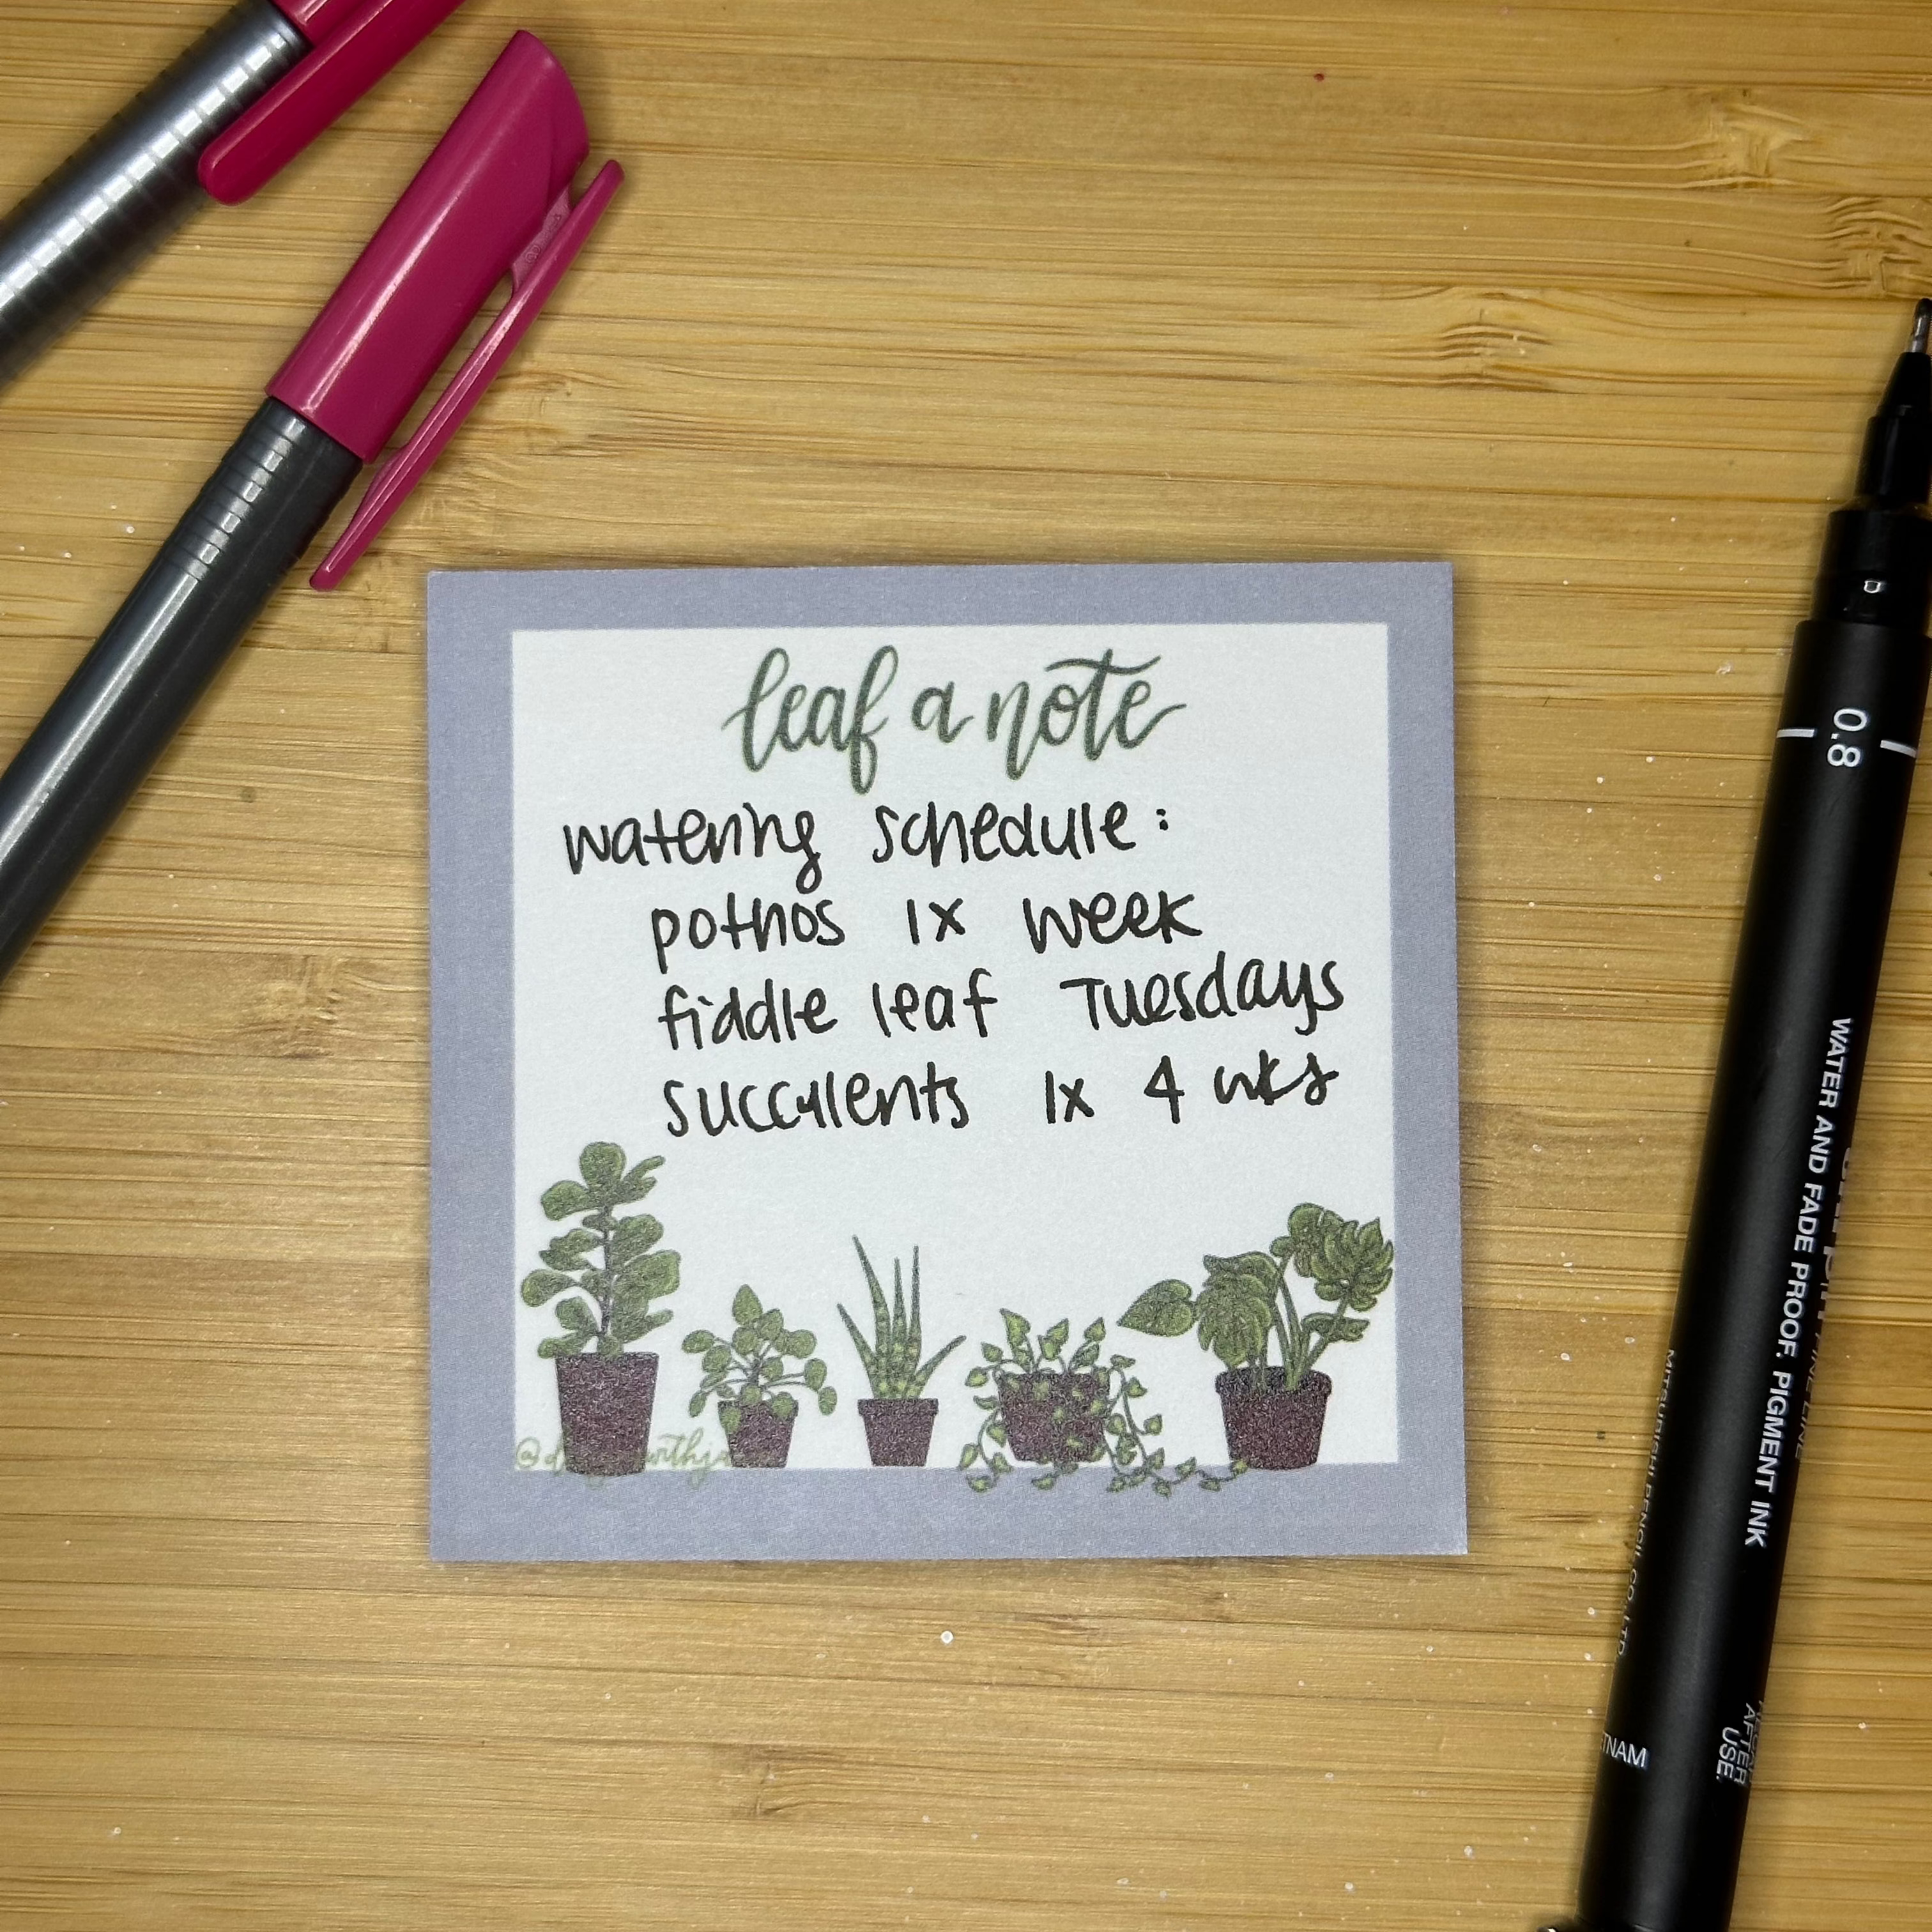 leaf a note
watering schedule:
pothos 1x week
fiddle leaf Tuesdays
succulents 1x 4 wks
0.8
WATER AND FADE PROOF. PIGMENT INK
MITSUBISHI PENCIL CO., LTD.
AFTER
USE.